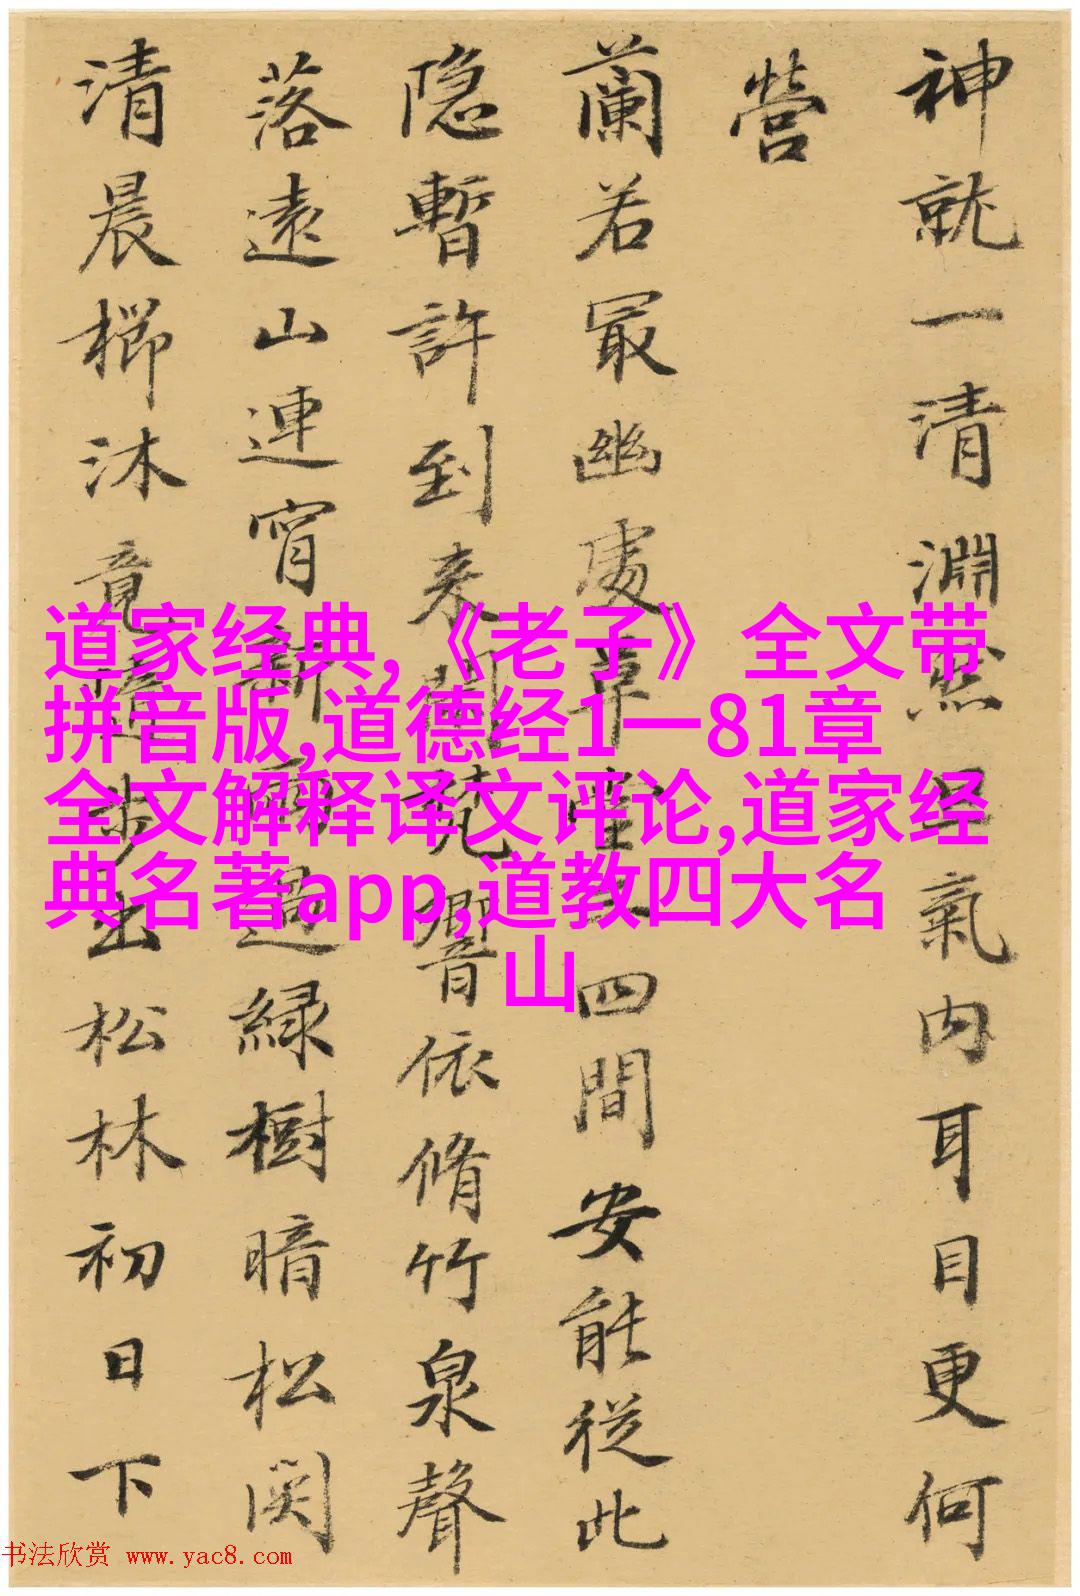 神就一清淵然呂氣内耳目更何
營
蘭若最幽處草堂三四間安能從此
隐暫許到来閒梵響音依脩竹泉聲
落遠山連宵新雨過緑樹暗松関
清晨櫛沐竟occ步出松林初日下
道家经典,《老子》全文带
拼音版,道德经1一81章
全文解释译文评论,道家经
典名著app,道教四大名
山
书法欣赏 www.yac8.com